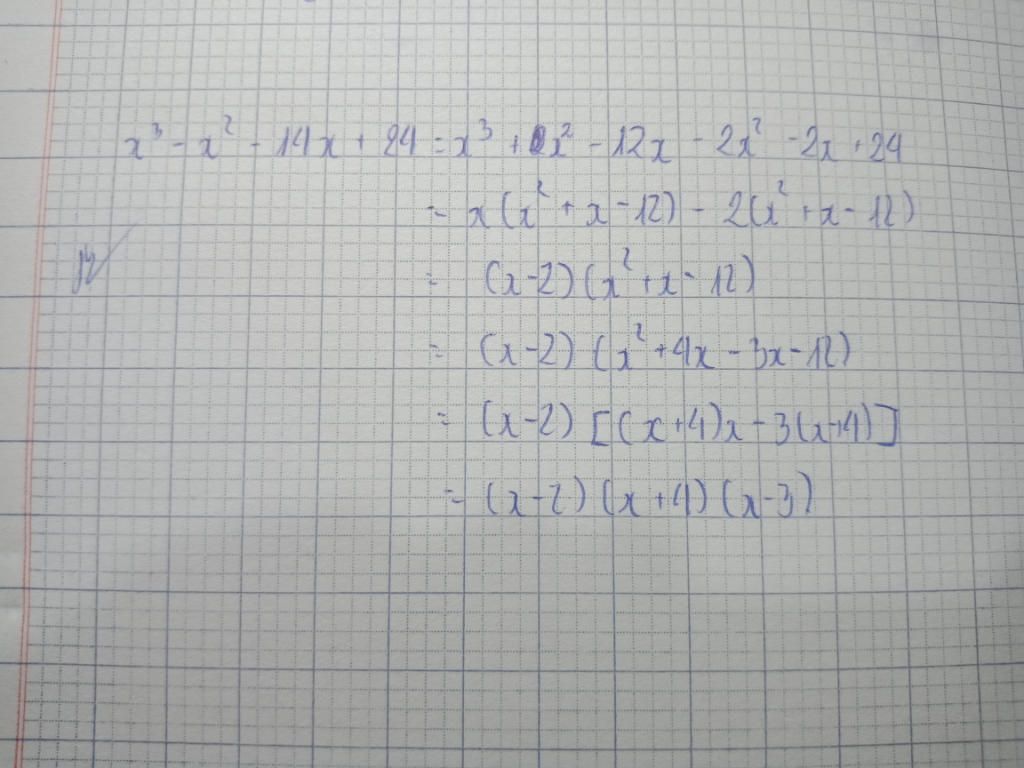 x³ - x² - 14x + 24 = x³ + x² - 12x - 2x² - 2x + 24
= x(x² + x - 12) - 2(x² + x - 12)
= (x-2)(x² + x - 12)
= (x-2)(x² + 4x - 3x - 12)
= (x-2)[(x+4)x - 3(x+4)]
= (x-2)(x+4)(x-3)